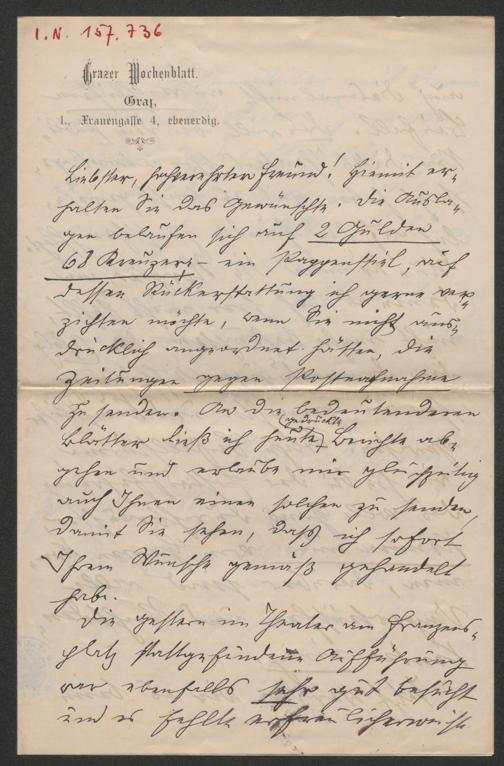 I.N. 157.736
Grazer Wochenblatt.
Graz,
I., Frauengasse 4, ebenerdig.
Liebster, hochverehrter Freund! Hiemit er-
halten Sie das Gewünschte. Die Ausla-
gen belaufen sich auf 2 Gulden
68 Kreuzer, – ein Pappenstiel, auf
dessen Rückerstattung ich gerne ver-
zichten möchte, wenn Sie nicht aus-
drücklich angeordnet hätten, die
Zeitungen gegen Postnachnahme
zu senden. An die bedeutenderen
Blätter ließ ich heute (gedruckte) Berichte ab-
gehen und erlaube mir gleichzeitig
auch Ihnen einen solchen zu senden,
damit Sie sehen, daß ich sofort
Ihrem Wunsche gemäß gehandelt
habe.
Die gestern im Theater am Franzens-
platz stattgefundene Aufführung
war ebenfalls sehr gut besucht
und es fehlte erfreulicherweise